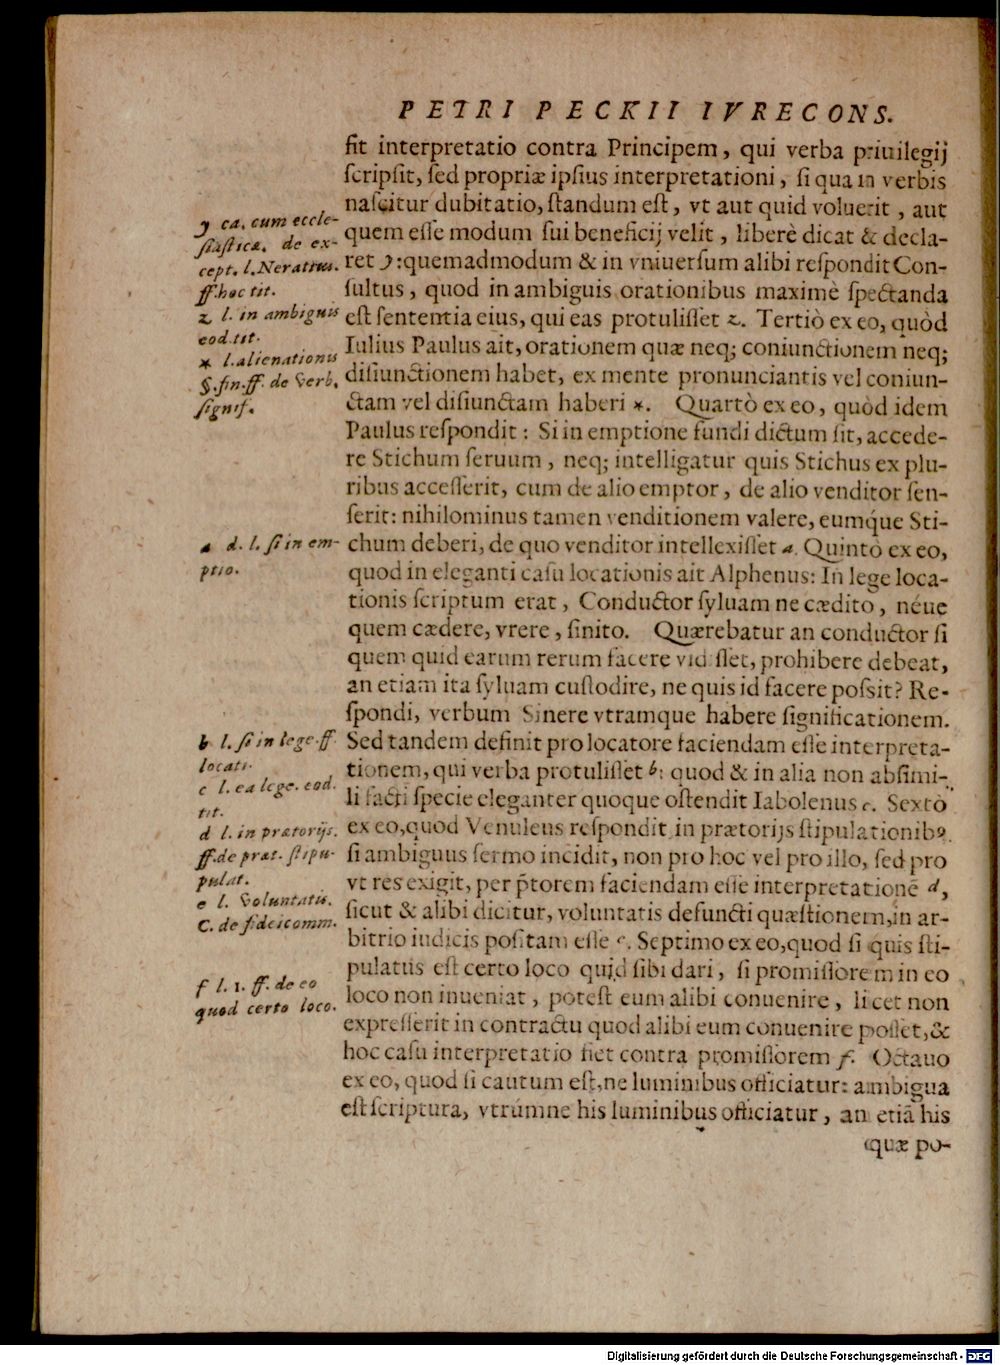 PETRI PECKII IVRECONS.
ſit interpretatio contra Principem, qui verba priuilegij
ſcripſit, ſed propriæ ipſius interpretationi, ſi qua in verbis
naſcitur dubitatio, ſtandum eſt, vt aut quid voluerit, aut
quem eſſe modum ſui beneficij velit, liberè dicat & decla-
ret y: quemadmodum & in vniuerſum alibi reſpondit Con-
ſultus, quod in ambiguis orationibus maximè ſpectanda
eſt ſententia eius, qui eas protuliſſet z. Tertiò ex eo, quòd
Iulius Paulus ait, orationem quæ neq; coniunctionem neq;
diſiunctionem habet, ex mente pronunciantis vel coniun-
ctam vel diſiunctam haberi *. Quartò ex eo, quòd idem
Paulus reſpondit: Si in emptione fundi dictum ſit, accede-
re Stichum ſeruum, neq; intelligatur quis Stichus ex plu-
ribus acceſſerit, cum de alio emptor, de alio venditor ſen-
ſerit: nihilominus tamen venditionem valere, eumq́ue Sti-
chum deberi, de quo venditor intellexiſſet a. Quintò ex eo,
quod in eleganti caſu locationis ait Alphenus: In lege loca-
tionis ſcriptum erat, Conductor ſyluam ne cædito, néue
quem cædere, vrere, ſinito. Quærebatur an conductor ſi
quem quid earum rerum facere vidiſſet, prohibere debeat,
an etiam ita ſyluam cuſtodire, ne quis id facere poſsit? Re-
ſpondi, verbum Sinere vtramque habere ſignificationem.
Sed tandem definit pro locatore faciendam eſſe interpreta-
tionem, qui verba protuliſſet b: quod & in alia non abſimi-
li facti ſpecie eleganter quoque oſtendit Iabolenus c. Sextò
ex eo, quod Venuleus reſpondit in prætorijs ſtipulationibꝰ
ſi ambiguus ſermo incidit, non pro hoc vel pro illo, ſed pro
vt res exigit, per p̃torem faciendam eſſe interpretationẽ d,
ſicut & alibi dicitur, voluntatis defuncti quæſtionem, in ar-
bitrio iudicis poſitam eſſe e. Septimo ex eo, quod ſi quis ſti-
pulatus eſt certo loco quid ſibi dari, ſi promiſſorem in eo
loco non inueniat, poteſt eum alibi conuenire, licet non
expreſſerit in contractu quod alibi eum conuenire poſſet, &
hoc caſu interpretatio fiet contra promiſſorem f. Octauo
ex eo, quod ſi cautum eſt, ne luminibus officiatur: ambigua
eſt ſcriptura, vtrúmne his luminibus officiatur, an etiã his
quæ po-
y ca. cum eccle-
ſiaſtica. de ex-
cept. l. Neratius.
ff. hoc tit.
z l. in ambiguis
eod. tit.
* l. alienationis
§. fin. ff. de verb.
ſignif.
a d. l. ſi in em-
ptio.
b l. ſi in lege. ff
locati.
c l. ea lege. eod.
tit.
d l. in prætorijs.
ff. de præt. ſtipu-
pulat.
e l. voluntatis.
C. de fideicomm.
f l. 1. ff. de eo
quod certo loco.
Digitalisierung gefördert durch die Deutsche Forschungsgemeinschaft - DFG